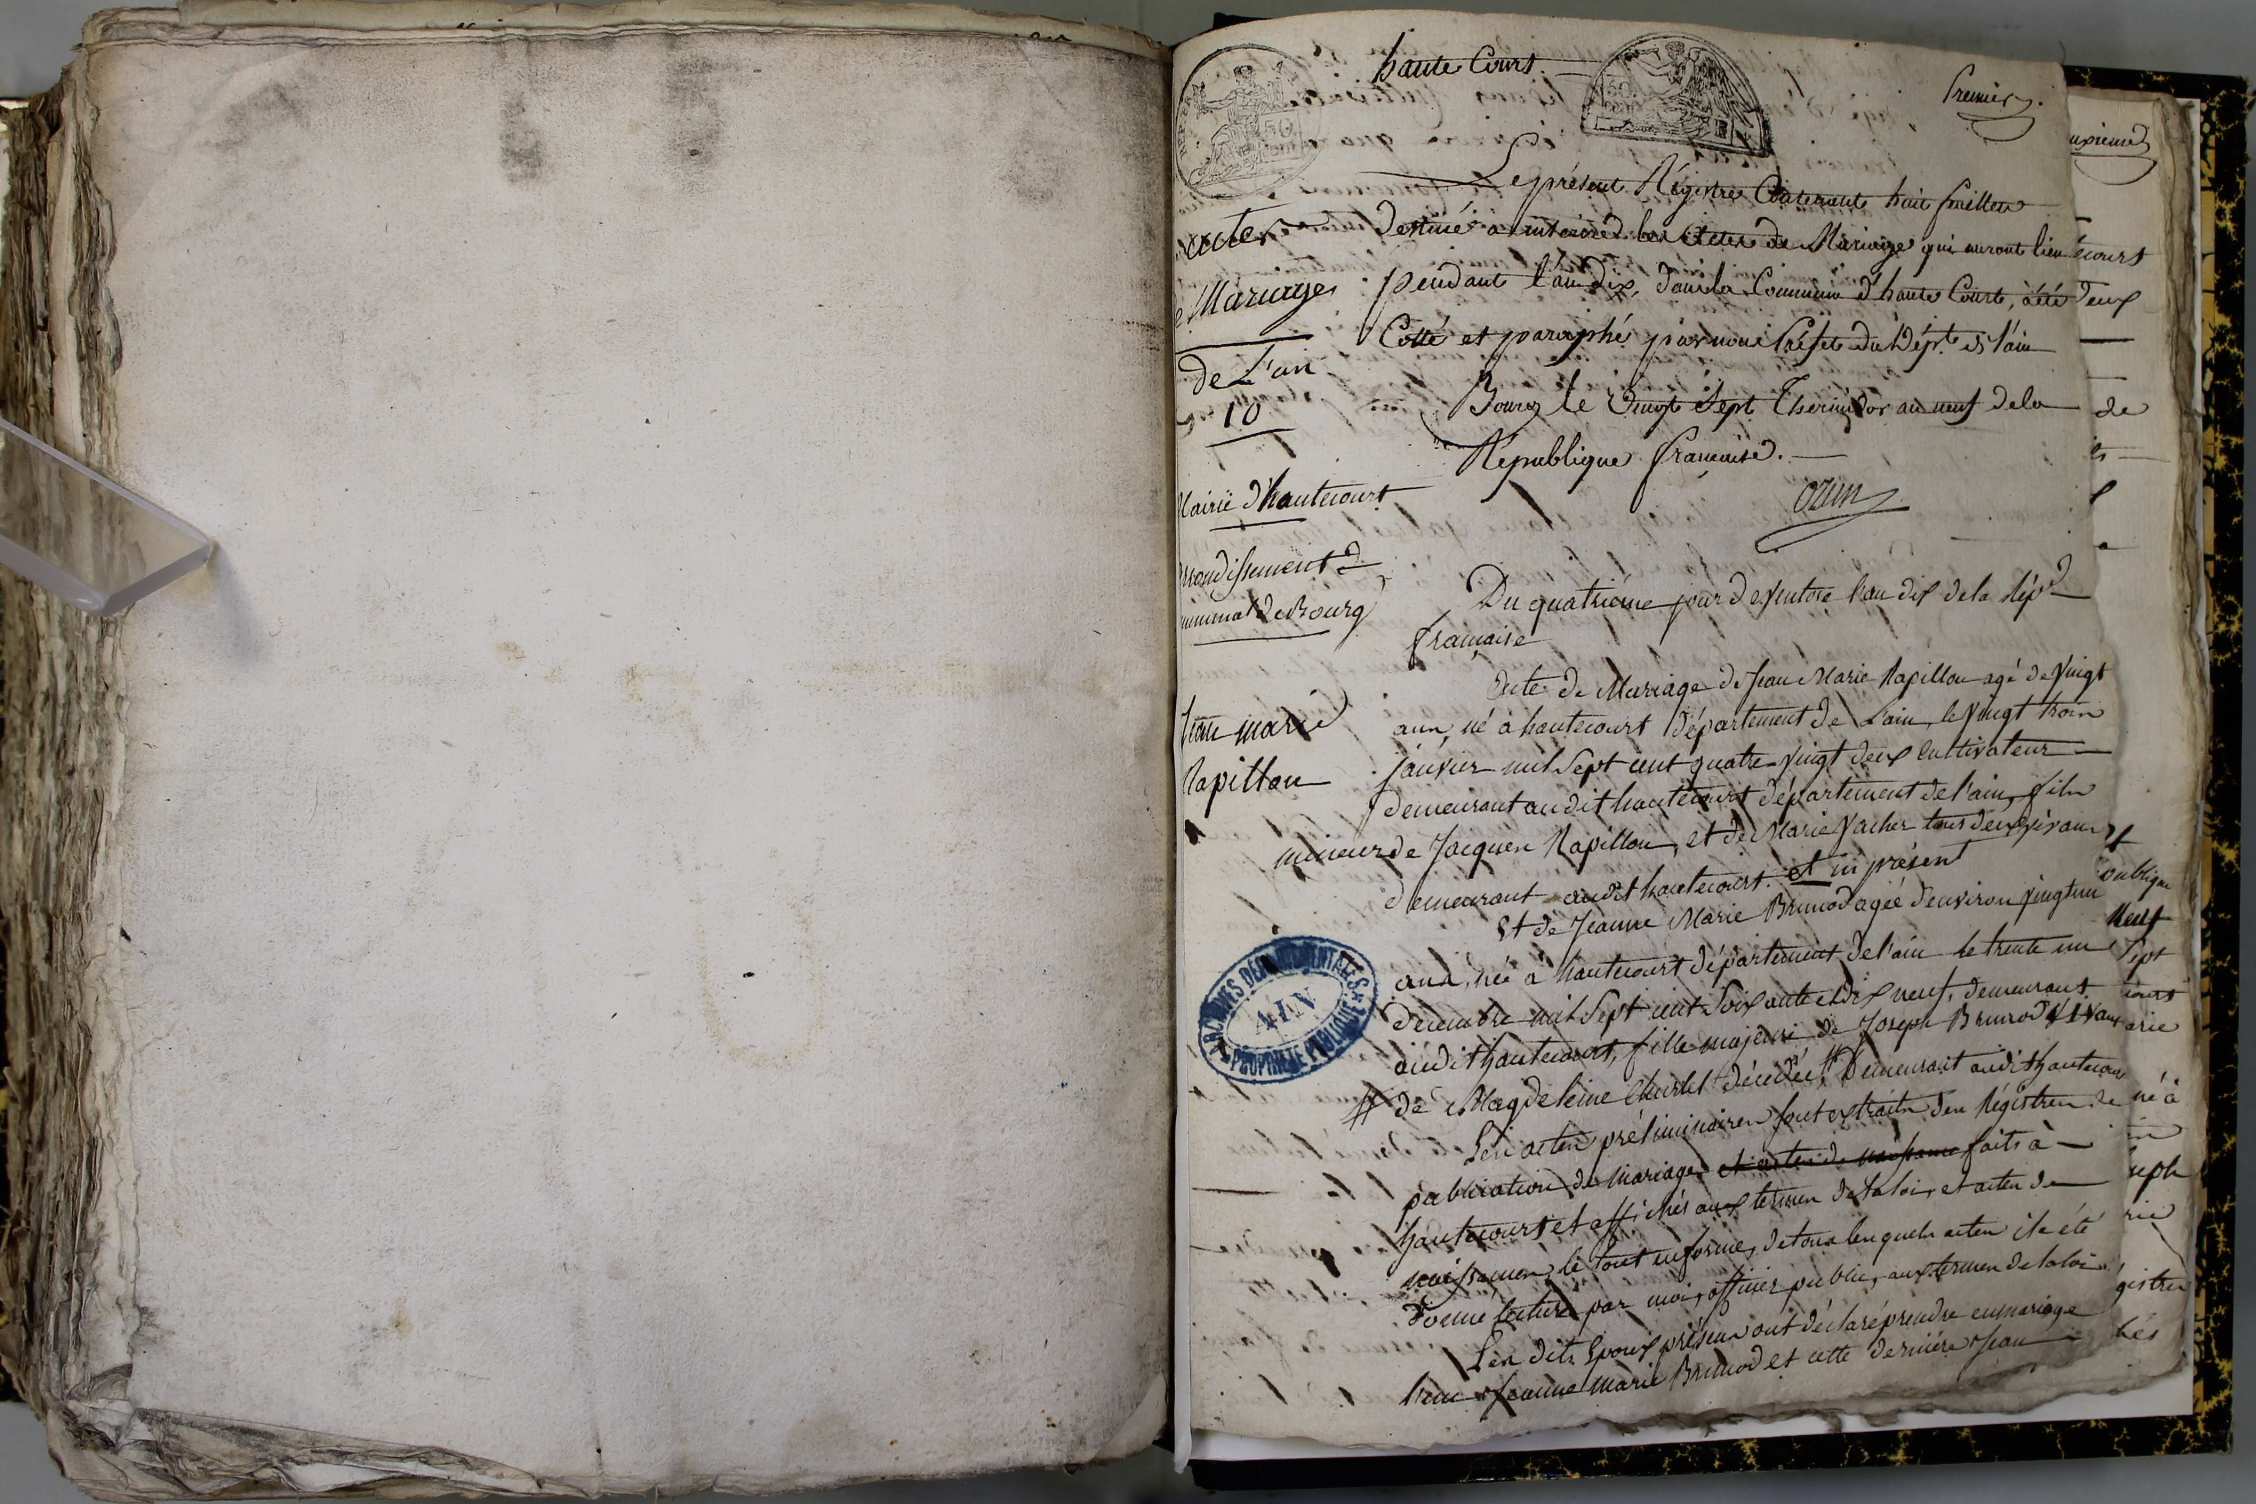 haute Court.
Premier.
Le présent Régistre Contenant huit feuillets
destiné a inscrire les Actes de Mariage qui auront lieu
pendant l'an dix, dans la Commune d'haute Court, a été
Cotté et paraphé par nous Préfet du Dépt. de l'ain
Bourg le Vingt Sept Thermidor an neuf de la
République française.
ozun
actes
de Mariages
de L'an
10
Mairie d'hautecourt
arrondissement
communal de Bourg
Du quatrième jour de Ventose l'an dix de la Rép.
française
Jean marie
Rapillon
Acte de Mariage de Jean Marie Rapillon agé de Vingt
ans, né à hautecourt département de L'ain, le Vingt trois
janvier mil Sept cent quatre Vingt deux cultivateur
demeurant au dit hautecourt département de l'ain, fils
mineur de Jacques Rapillon, et de Marie Vacher tous deux vivans
demeurant audit hautecourt. et ici présent
Et de Jeanne Marie Brunod agée d'environ Vingt un
ans, née à hautecourt département de l'ain le trente un
décembre mil Sept cent Soixante et dix neuf, demeurant
audit hautecourt, fille majeure, de Joseph Brunod vivant
# de Magdeleine Charlet décédée, # Demeurant audit hautecour
Les actes préliminaires sont extraits des Régistres de
publication de mariage et actes de naissance faits à
hautecourt et affichés aux termes de la loi, et actes de
naissances, le tout en forme, de tous lesquels actes il a été
donné lecture par moi, officier public, aux termes de la loi
Les dits Epoux présens ont déclaré prendre en mariage
l'un Jeanne Marie Brunod et cette dernière Jean
ARCHIVES DÉPARTEMENTALES
AIN
PROPRIÉTÉ PUBLIQUE
uxieme
ecourt
deux
de
es
oublique
Neuf
Sept
court
arie
né à
seph
rie
gistre
hés